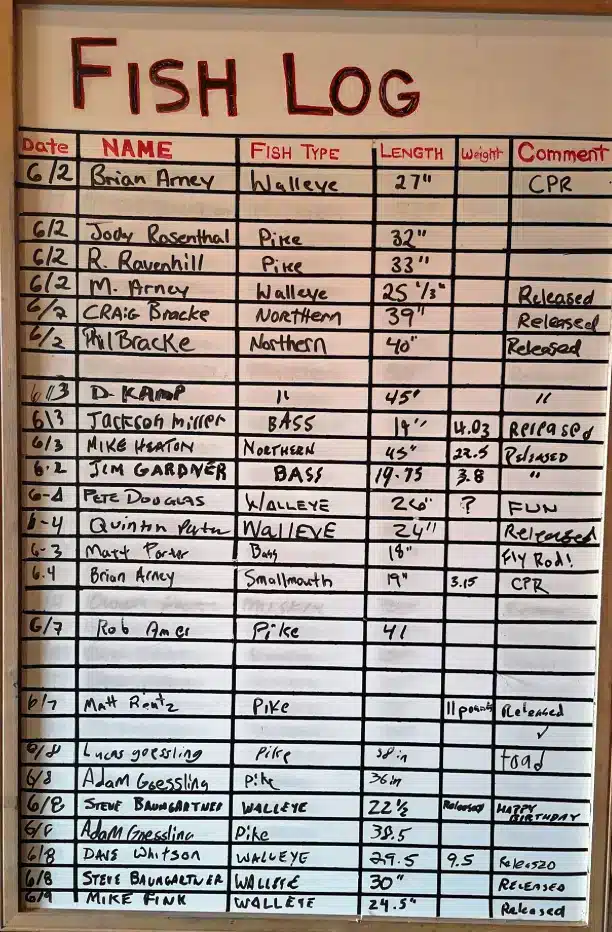 FISH LOG
Date NAME FISH TYPE LENGTH Weight Comment
6/2 Brian Arney Walleye 27" CPR
6/2 Jody Rosenthal Pike 32"
6/2 R. Ravenhill Pike 33"
6/2 M. Arney Walleye 25 1/3" Released
6/2 CRAIG Bracke NORTHERN 39" Released
6/2 Phil Bracke Northern 40" Released
6/3 D. KAMP " 45" "
6/3 Jackson Miller BASS 19" 4.03 Released
6/3 MIKE HEATON NORTHERN 45" 22.5 Released
6-2 JIM GARDNER BASS 19.75 3.8 "
6-4 PETE DOUGLAS WALLEYE 26" ? FUN
6-4 Quinton WALLEYE 24" Released
6-3 Matt Porter Bass 18" Fly Rod!
6.4 Brian Arney Smallmouth 19" 3.15 CPR
6/7 Rob Pike 41
6/7 Matt Pike 11 pounds Released
✓
6/8 Lucas goessling Pike 38 in toad
6/8 Adam Goessling Pike 36in
6/8 STEVE BAUMGARTNER WALLEYE 22 1/2 Released HAPPY BIRTHDAY
Adam Goessling Pike 38.5
6/8 DAVE Whitson WALLEYE 29.5 9.5 Released
6/8 STEVE BAUMGARTNER WALLEYE 30" RELEASED
6/9 MIKE FINK WALLEYE 24.5" Released